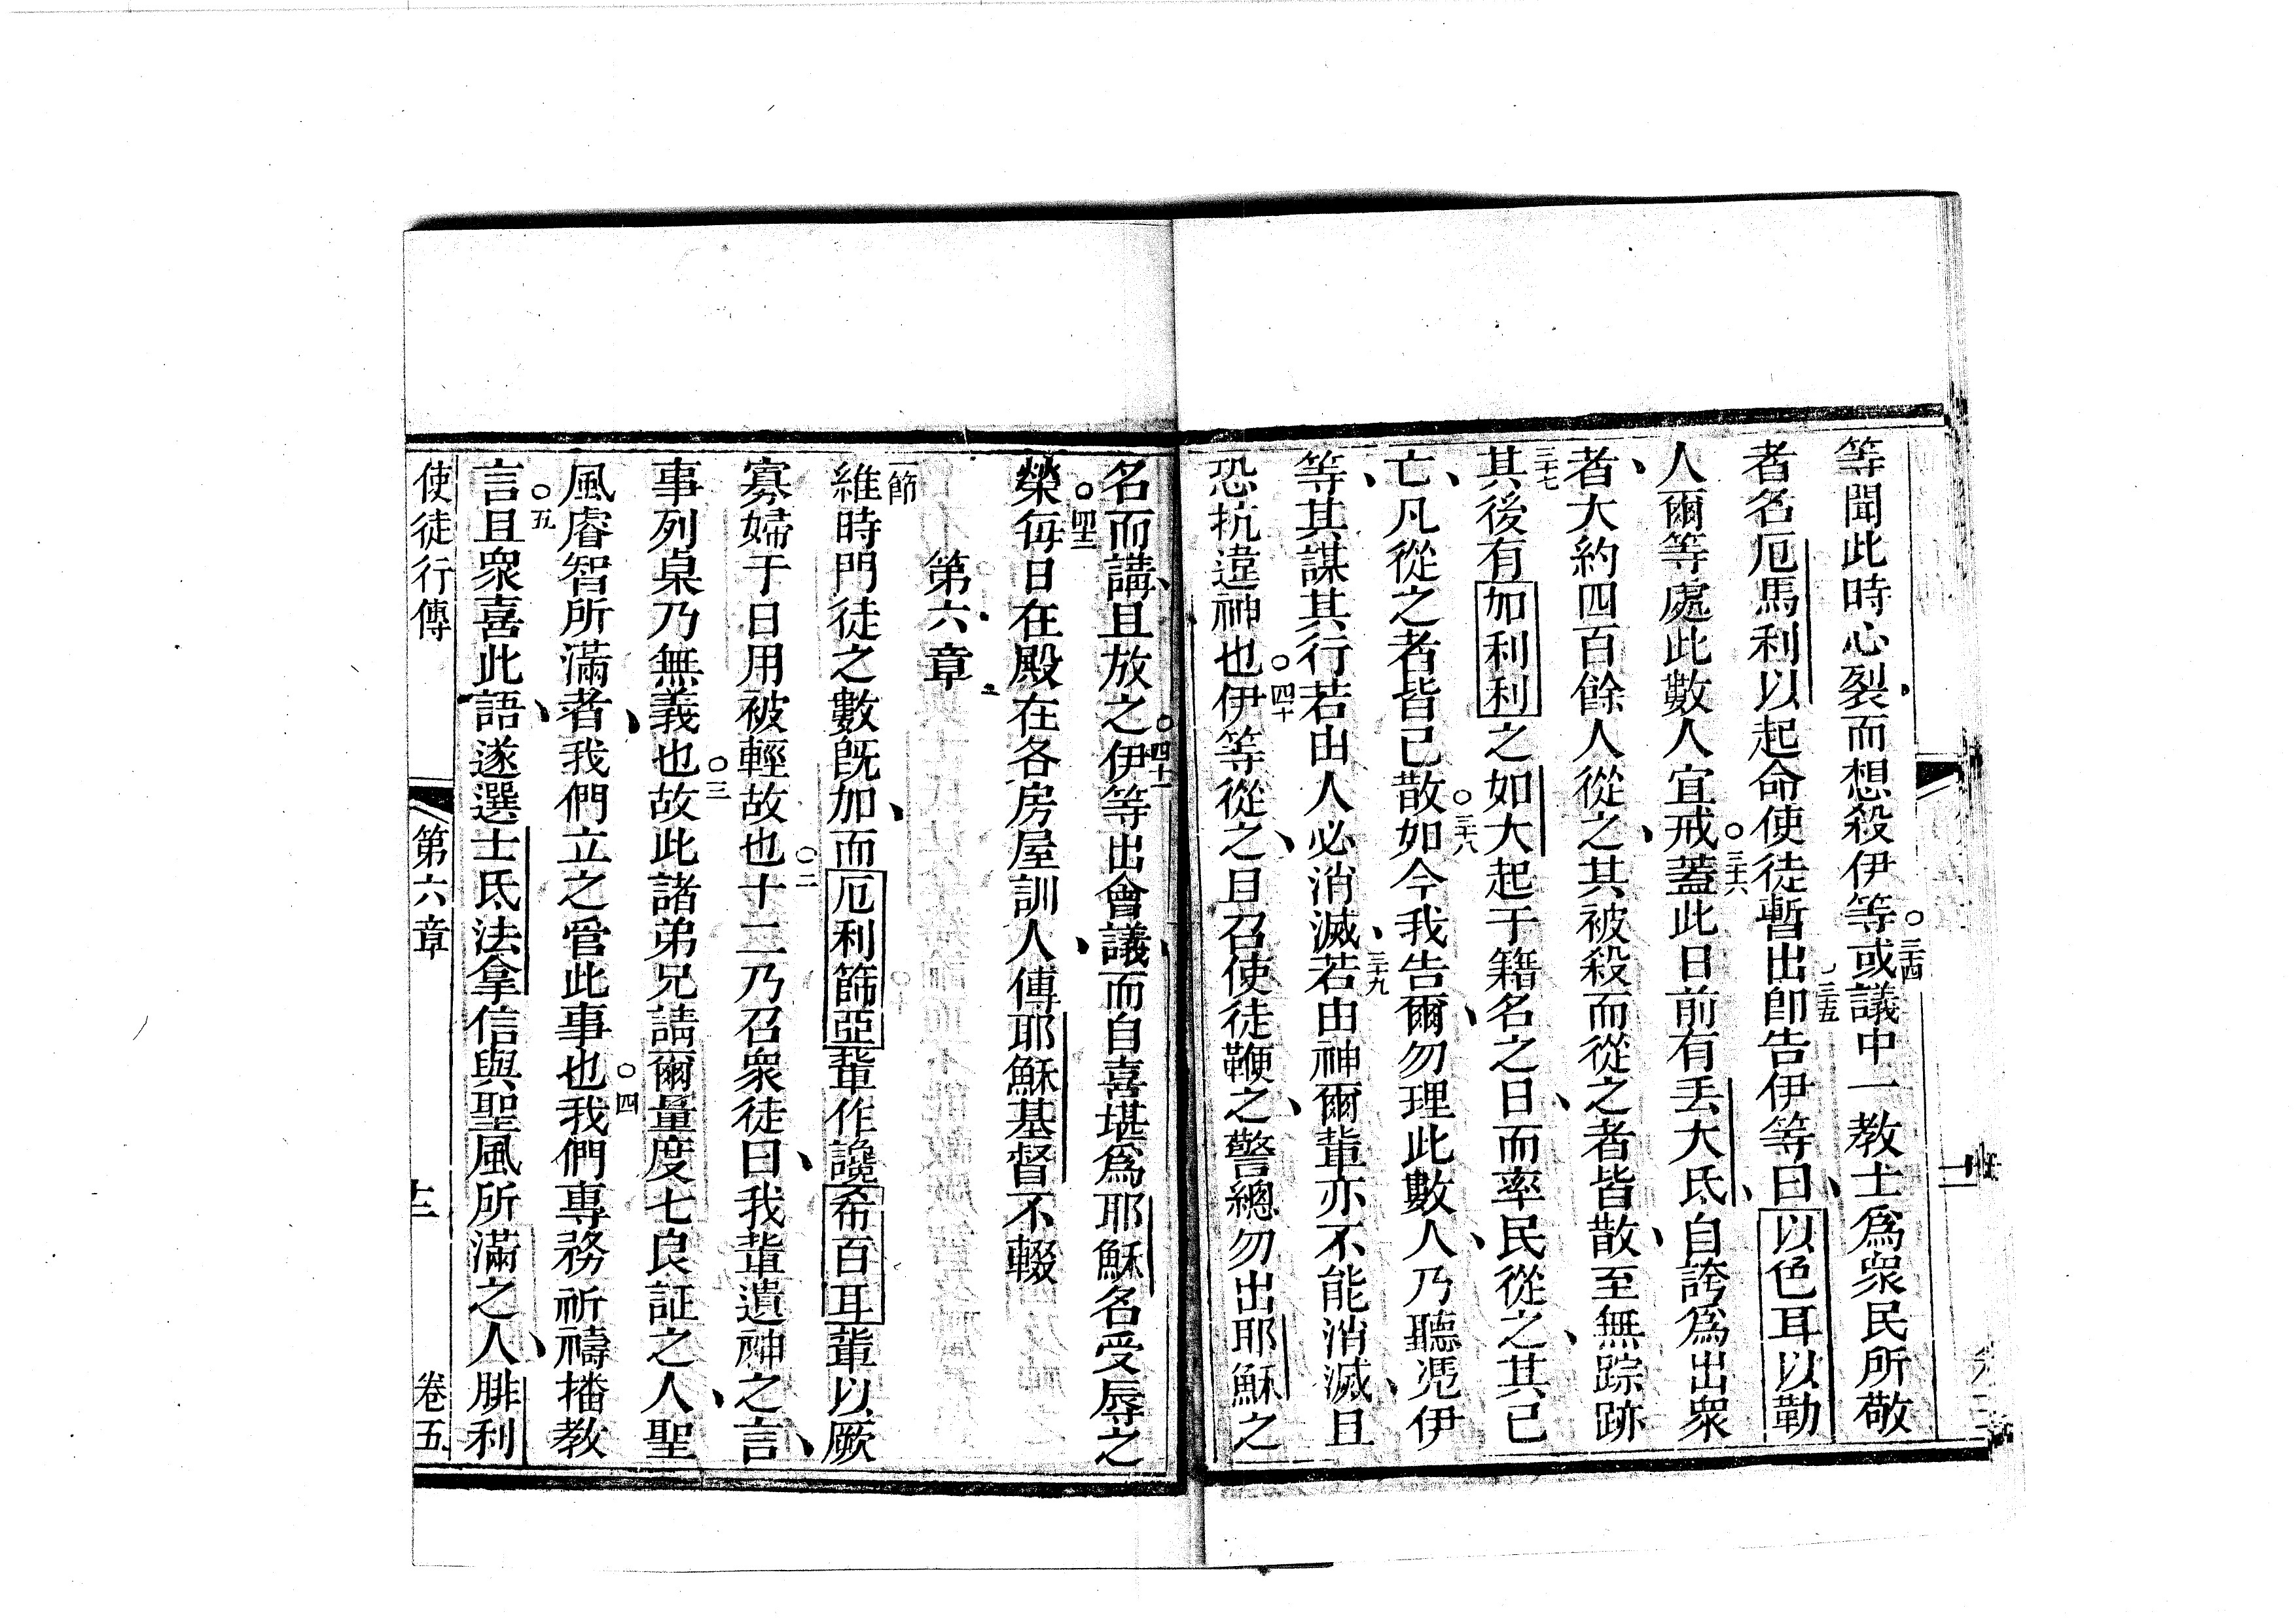 等聞此時心裂而想殺伊等○三十四或議中一教士爲衆民所敬
者名厄馬利以起命使徒暫出三十五即告伊等曰以色耳以勒
人爾等處此數人宜戒○三十六蓋此日前有丟大氐自誇爲出衆
者大約四百餘人從之其被殺而從之者皆散至無踪跡
三十七其後有加利利之如大起于籍名之日而率民從之其已
亡凡從之者皆已散○三十八如今我告爾勿理此數人乃聽凴伊
等其謀其行若由人必消滅三十九若由神爾輩亦不能消滅且
恐抗違神也○四十伊等從之且召使徒鞭之警總勿出耶穌之
名而講且放之○四十一伊等出會議而自喜堪爲耶穌名受辱之
榮○四十二每日在殿在各房屋訓人傳耶穌基督不輟
第六章
一節維時門徒之數旣加而厄利篩亞輩作讒希百耳輩以厥
寡婦于日用被輕故也○二十二乃召衆徒曰我輩遺神之言
事列桌乃無義也○三故此諸弟兄請爾量度七良証之人聖
風睿智所滿者我們立之管此事也○四我們專務祈禱播教
言○五且衆喜此語遂選士氐法拿信與聖風所滿之人腓利
使徒行傳 第六章 十二 卷五